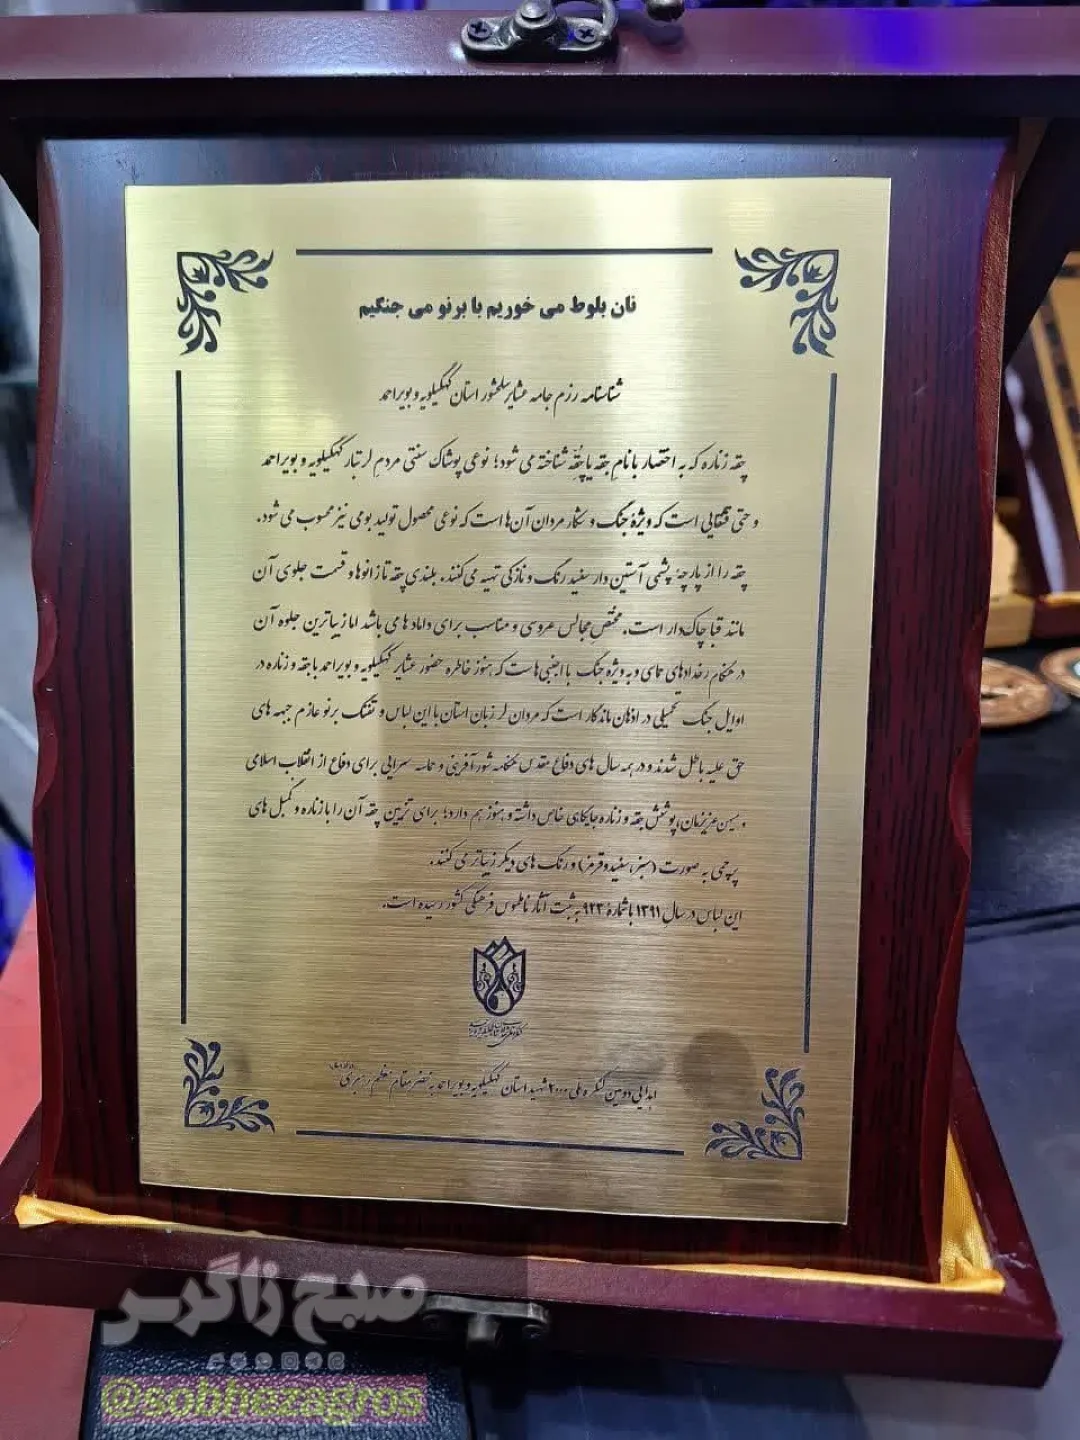 نان بلوط می خوریم با برنو می جنگیم
شناسنامه رزم جامه عشایر سلحشور استان کهگیلویه و بویراحمد
چقه زناره که به اختصار با نامِ جقه یا چُقِّه شناخته می شود؛ نوعی پوشاک سنتی مردمِ لر تبار کهگیلویه و بویراحمد
و حتی قشقایی است که ویژهٔ جنگ و شکار مردان آن ها است که نوعی محصول تولید بومی نیز محسوب می شود.
چقه را از پارچهٔ پشمی آستین دار سفید رنگ و نازکی تهیه می کنند. بلندی چقه تا زانوها و قسمت جلوی آن
مانند قبا چاک دار است. مختصِ مجالس عروسی و مناسب برای داماد ها می باشد اما زیباترین جلوه آن
در هنگام رخدادهای و به ویژه جنگ با اجنبی هاست که هنوز خاطره حضور عشایر کهگیلویه و بویراحمد با چقه و زناره در
اوایل جنگ تحمیلی در اذهان ماندگار است که مردان لر زبان استان با این لباس و تفنگ برنو عازم جبهه های
حق علیه باطل شدند و در همه سال های دفاع مقدس شور آفرینی و حماسه سرایی برای دفاع از انقلاب اسلامی
و میهن عزیزمان، پوشش چقه و زناره جایگاهی خاص داشته و هنوز هم دارد؛ برای تزیین چقه آن را با زناره و های
پرچمی به صورت (سبز، سفید و قرمز) و رنگ های دیگر زیباتر می کنند.
این لباس در سالِ ۱۳۹۱ با شمارهٔ ۹۲۳ به ثبت آثار ناملموس فرهنگی کشور رسیده است.
اهدایی دومین کنگره ملی ۲۰۰۰ شهید استان کهگیلویه و بویراحمد به محضر مقام معظم رهبری
صبح زاگرس
@sobhezagros